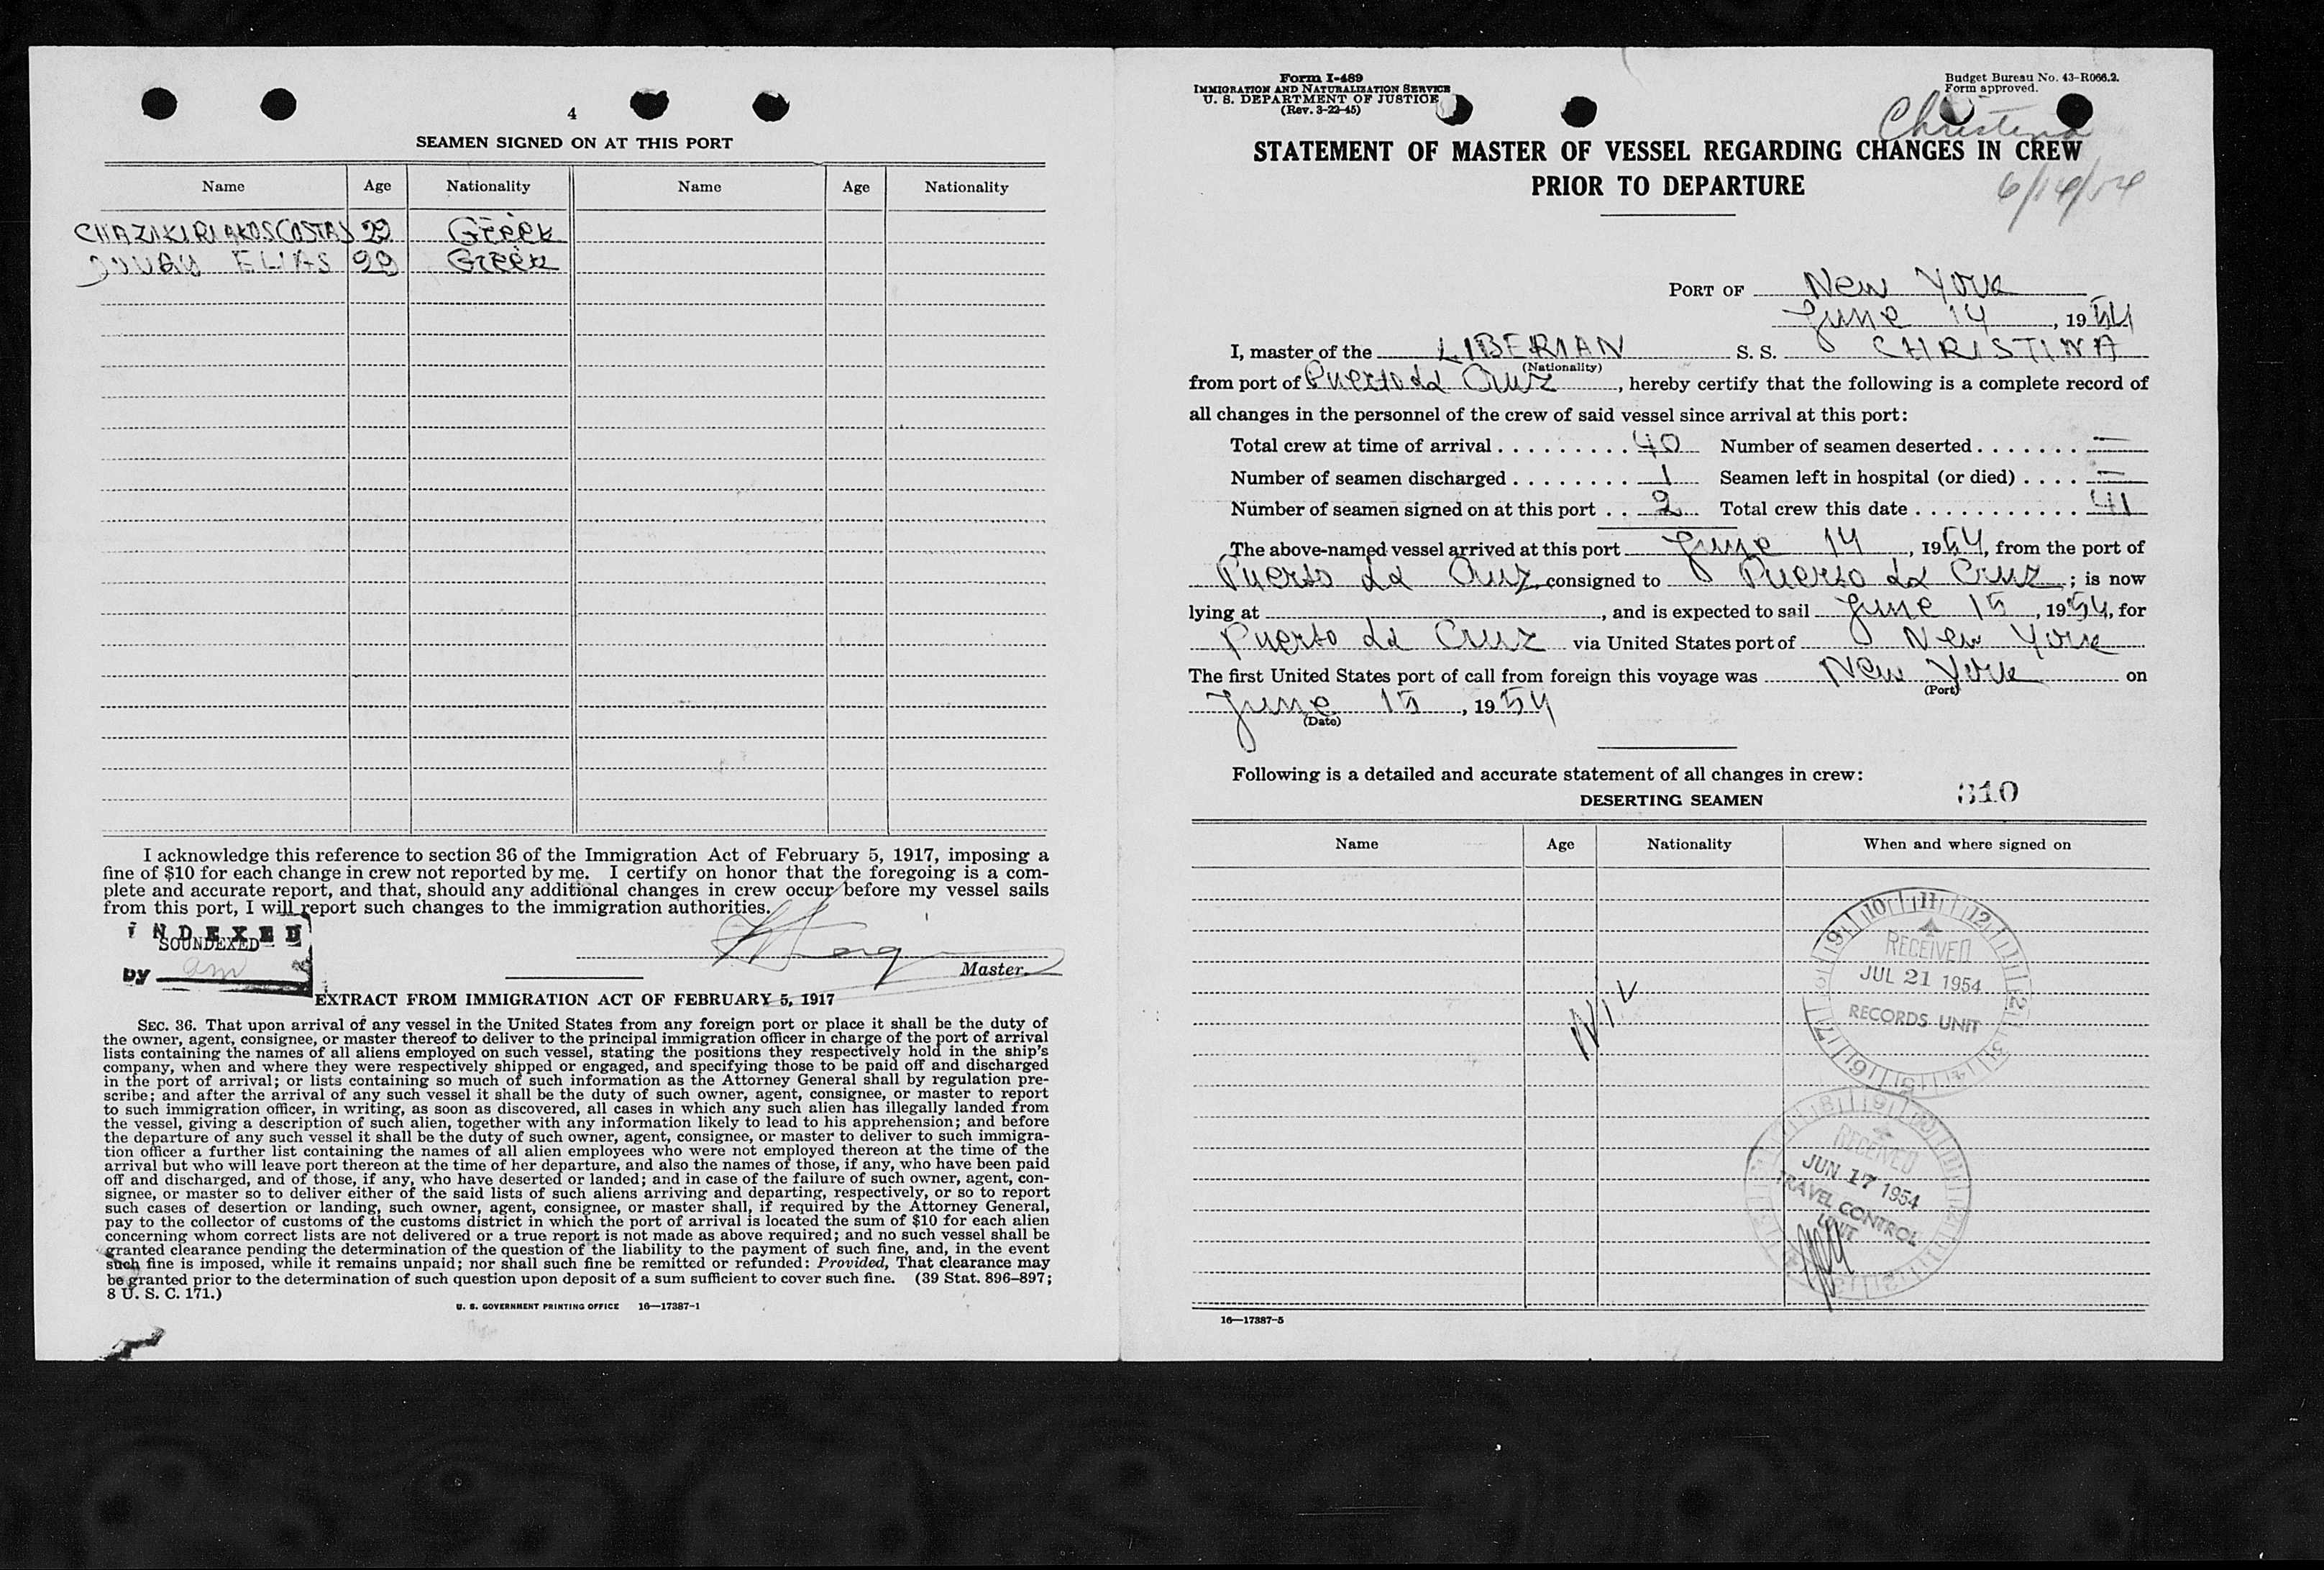 4
SEAMEN SIGNED ON AT THIS PORT
Name Age Nationality Name Age Nationality
CHAZAKIRIAKOS COSTAS 22 Greek
ELIAS 29 Greek
I acknowledge this reference to section 36 of the Immigration Act of February 5, 1917, imposing a
fine of $10 for each change in crew not reported by me. I certify on honor that the foregoing is a com-
plete and accurate report, and that, should any additional changes in crew occur before my vessel sails
from this port, I will report such changes to the immigration authorities.
INDEXED
SOUNDEXED
by am
Master.
EXTRACT FROM IMMIGRATION ACT OF FEBRUARY 5, 1917
SEC. 36. That upon arrival of any vessel in the United States from any foreign port or place it shall be the duty of
the owner, agent, consignee, or master thereof to deliver to the principal immigration officer in charge of the port of arrival
lists containing the names of all aliens employed on such vessel, stating the positions they respectively hold in the ship's
company, when and where they were respectively shipped or engaged, and specifying those to be paid off and discharged
in the port of arrival; or lists containing so much of such information as the Attorney General shall by regulation pre-
scribe; and after the arrival of any such vessel it shall be the duty of such owner, agent, consignee, or master to report
to such immigration officer, in writing, as soon as discovered, all cases in which any such alien has illegally landed from
the vessel, giving a description of such alien, together with any information likely to lead to his apprehension; and before
the departure of any such vessel it shall be the duty of such owner, agent, consignee, or master to deliver to such immigra-
tion officer a further list containing the names of all alien employees who were not employed thereon at the time of the
arrival but who will leave port thereon at the time of her departure, and also the names of those, if any, who have been paid
off and discharged, and of those, if any, who have deserted or landed; and in case of the failure of such owner, agent, con-
signee, or master so to deliver either of the said lists of such aliens arriving and departing, respectively, or so to report
such cases of desertion or landing, such owner, agent, consignee, or master shall, if required by the Attorney General,
pay to the collector of customs of the customs district in which the port of arrival is located the sum of $10 for each alien
concerning whom correct lists are not delivered or a true report is not made as above required; and no such vessel shall be
granted clearance pending the determination of the question of the liability to the payment of such fine, and, in the event
such fine is imposed, while it remains unpaid; nor shall such fine be remitted or refunded: Provided, That clearance may
be granted prior to the determination of such question upon deposit of a sum sufficient to cover such fine. (39 Stat. 896–897;
8 U. S. C. 171.)
U. S. GOVERNMENT PRINTING OFFICE 16—17387-1
Form I-489
IMMIGRATION AND NATURALIZATION SERVICE
U. S. DEPARTMENT OF JUSTICE
(Rev. 3-22-45)
Budget Bureau No. 43-R066.2.
Form approved.
Christina
STATEMENT OF MASTER OF VESSEL REGARDING CHANGES IN CREW
PRIOR TO DEPARTURE
6/14/54
PORT OF New York
June 14, 1954
I, master of the LIBERIAN S. S. CHRISTINA
(Nationality)
from port of Puerto La Cruz, hereby certify that the following is a complete record of
all changes in the personnel of the crew of said vessel since arrival at this port:
Total crew at time of arrival 40 Number of seamen deserted —
Number of seamen discharged 1 Seamen left in hospital (or died) —
Number of seamen signed on at this port 2 Total crew this date 41
The above-named vessel arrived at this port June 14, 1954, from the port of
Puerto La Cruz, consigned to Puerto La Cruz; is now
lying at , and is expected to sail June 15, 1954, for
Puerto La Cruz via United States port of New York
The first United States port of call from foreign this voyage was New York on
(Port)
June 15, 1954
(Date)
Following is a detailed and accurate statement of all changes in crew:
310
DESERTING SEAMEN
Name Age Nationality When and where signed on
RECEIVED
JUL 21 1954
RECORDS UNIT
Nil
RECEIVED
JUN 17 1954
TRAVEL CONTROL
UNIT
16—17387-5